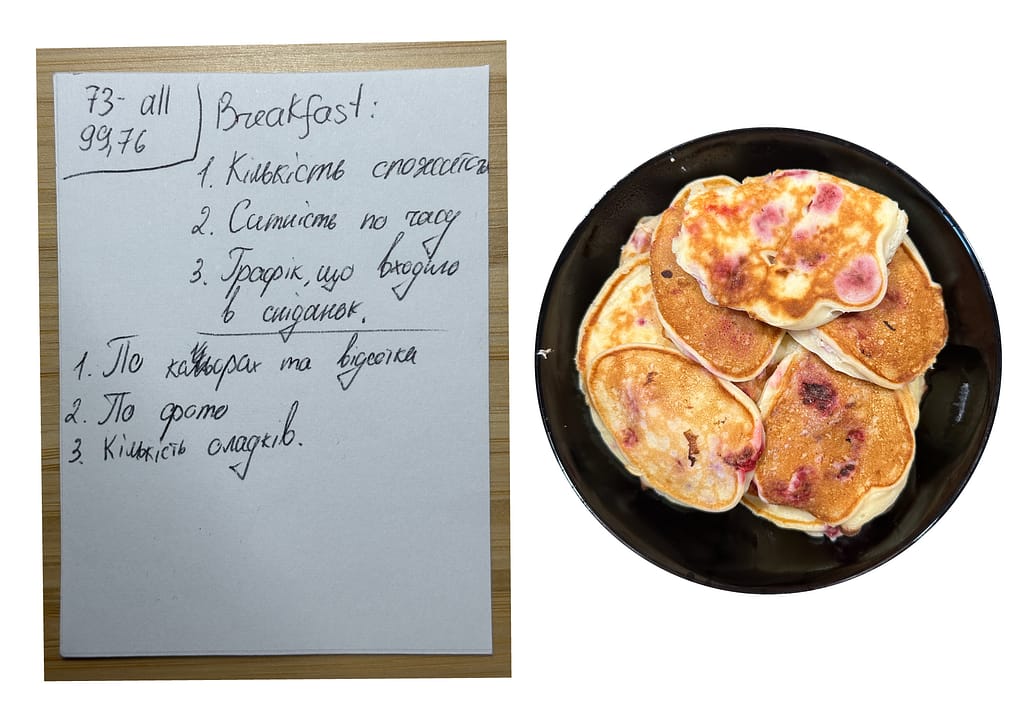 73- all
99,76
Breakfast:
1. Кількість спожитсь
2. Ситність по часу
3. Графік, що входило
в сніданок.
1. По кальорах та відсотка
2. По фото
3. Кількість оладків.